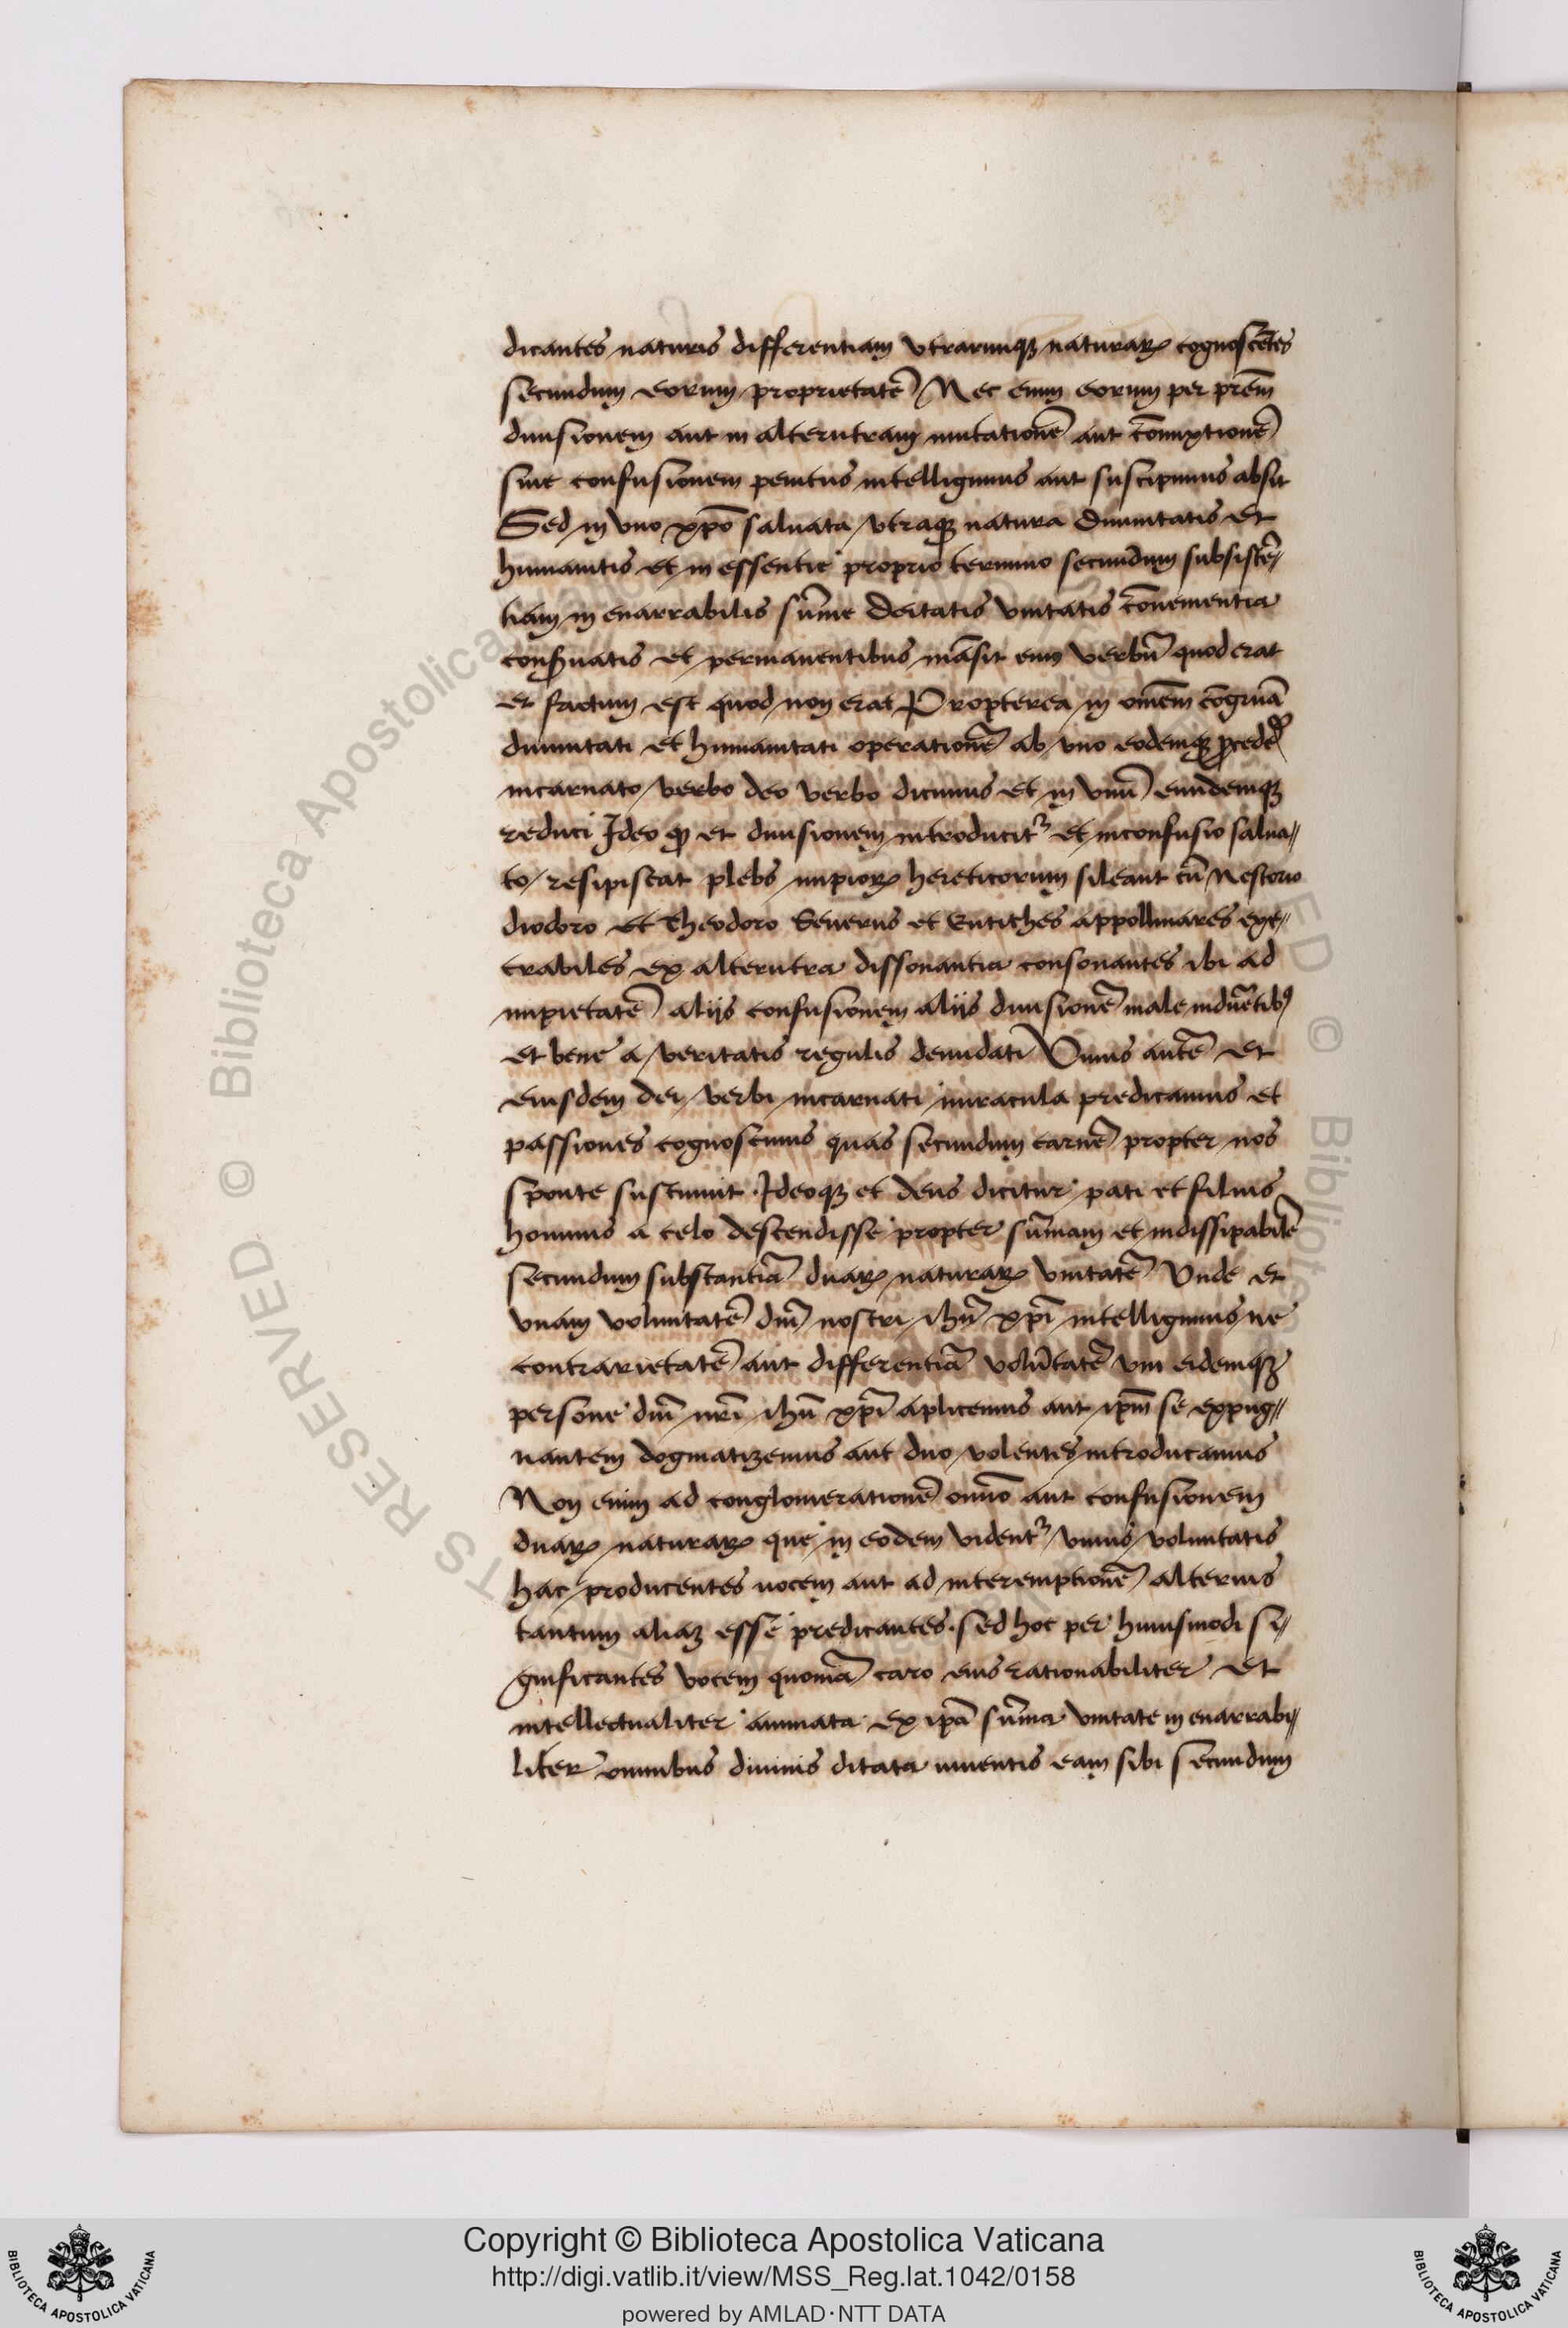 dicantes naturis differentiam vtrarumqȝ naturaꝝ cognoscẽtes
secundum eorum proprietatẽ Nec enim eorum per prẽm
diuisionem aut in alterutram mutationẽ aut cõmixtionẽ
siue confusionem penitus intelligimus aut suscipimus absit
Sed in vno xp̃o saluata vtraqȝ natura diuinitatis et
humanitis et in essentie proprio termino secundum subsistẽ-
tiam in enarrabilis sum̃e deitatis vnitatis cõuenientia
conseruatis et permanentibus mãsit enim verbũ quod erat
et factum est quod non erat Propterea in om̃em cõgruã
diuinitati et humanitati operationẽ ab vno eodemqȝ ꝓcedẽ
incarnato verbo deo verbo dicimus et in vnũ eundemqȝ
reduci Ideo ꝙ et diuisionem introducitꝛ et inconfusio salua-
to resipiscat plebs impioꝝ hereticorum sileant cũ Nestorio
diodoro et theodoro Seuerus et Eutiches appollinares exe-
crabiles ex alterutra dissonantia consonantes ibi ad
impietatẽ alijs confusionem alijs diuisionẽ male inducẽtibꝰ
et bene a veritatis regulis denudati Vnius autẽ et
eiusdem dei verbi incarnati miracula predicamus et
passiones cognoscimus quas secundum carnẽ propter nos
sponte sustinuit Ideoqȝ et deus dicitur pati et filius
hominis a celo descendisse propter sum̃am et indissipabilẽ
secundum substantiã duaꝝ naturaꝝ vnitatẽ Vnde et
vnam voluntatẽ dñi nostri ihũ xp̃i intelligimus ne
contrarietatẽ aut differentiã volũtatẽ vni eidemqȝ
persone dñi nr̃i ihũ xp̃i aplicemus aut ip̃m se expug-
nantem dogmatizemus aut duo volentes introducamus
Non enim ad conglomerationẽ om̃o aut confusionem
duaꝝ naturaꝝ que in eodem videntꝛ vnius voluntatis
hac producentes uocem aut ad interemptionẽ alterius
tantum aliaȝ esse predicantes. sed hoc per huiusmodi si-
gnificantes vocem quoniã caro eius rationabiliter et
intellectualiter animata ex ip̃a sum̃a vnitate in enarrabi-
liter omnibus diuinis ditata iuuentis eam sibi secundum
Copyright © Biblioteca Apostolica Vaticana
http://digi.vatlib.it/view/MSS_Reg.lat.1042/0158
powered by AMLAD·NTT DATA